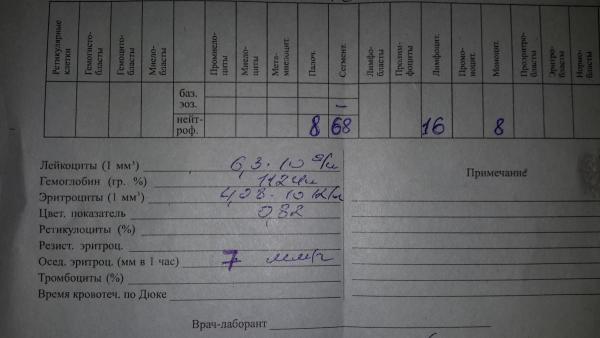 Ретикулярные клетки
Гемогисто-бласты
Гемоцито-бласты
Миело-бласты
Промиело-циты
Миело-циты
Мета-миелоцит.
Палоч.
Сегмент.
Лимфо-бласты
Пролим-фоциты
Лимфоцит.
Промо-ноцит.
Моноцит.
Проэритро-бласты
Эритро-бласты
Нормо-бласты
баз.
эоз. –
нейт-роф. 8 68 16 8
Лейкоциты (1 мм³) 6,3·10⁹/л
Гемоглобин (гр. %) 112 г/л
Примечание
Эритроциты (1 мм³) 4,08·10 12/л
Цвет. показатель 0,82
Ретикулоциты (%)
Резист. эритроц.
Осед. эритроц. (мм в 1 час) 7 мм/ч
Тромбоциты (%)
Время кровотеч. по Дюке
Врач-лаборант